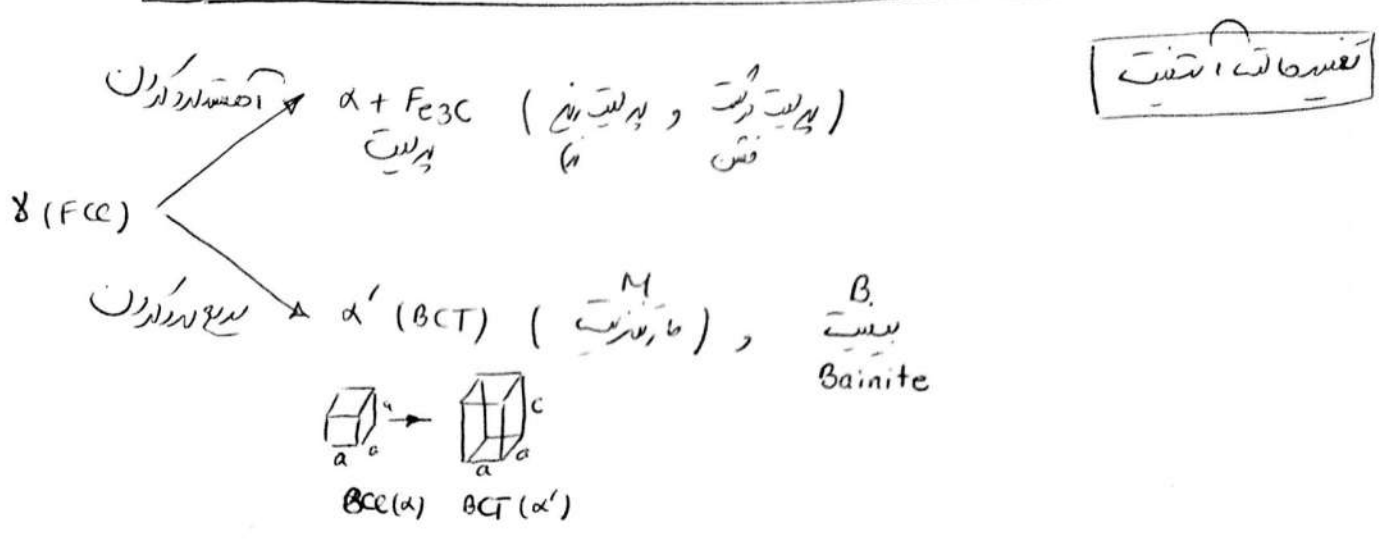 تغییر حالت آستنیت
آهسته سرد کردن
α + Fe3C ( پرلیت درشت و پرلیت ریز )
پرلیت
خشن
γ (FCC)
سریع سرد کردن
M
B.
α' (BCT) ( مارتنزیت ) , بینیت
Bainite
a a a → a a c
BCC(α) BCT(α')